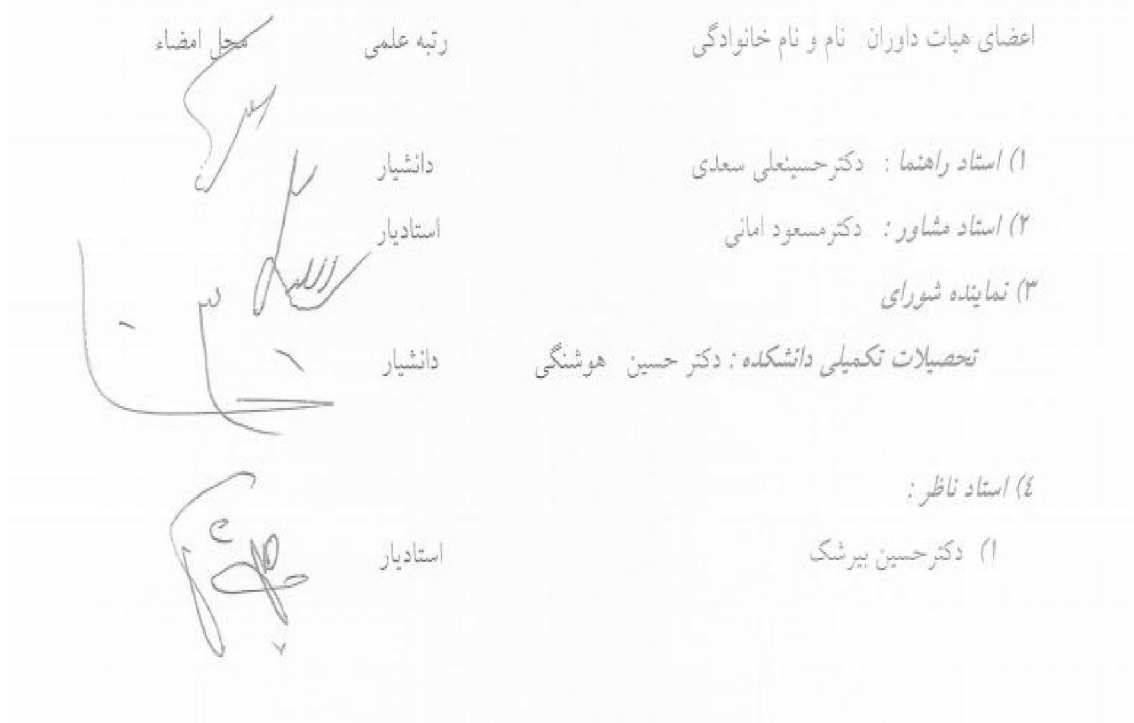 اعضای هیات داوران نام و نام خانوادگی رتبه علمی محل امضاء
۱) استاد راهنما : دکترحسینعلی سعدی دانشیار
۲) استاد مشاور : دکترمسعود امانی استادیار
۳) نماینده شورای
تحصیلات تکمیلی دانشکده : دکتر حسین هوشنگی دانشیار
٤) استاد ناظر :
۱) دکترحسین بیرشک استادیار